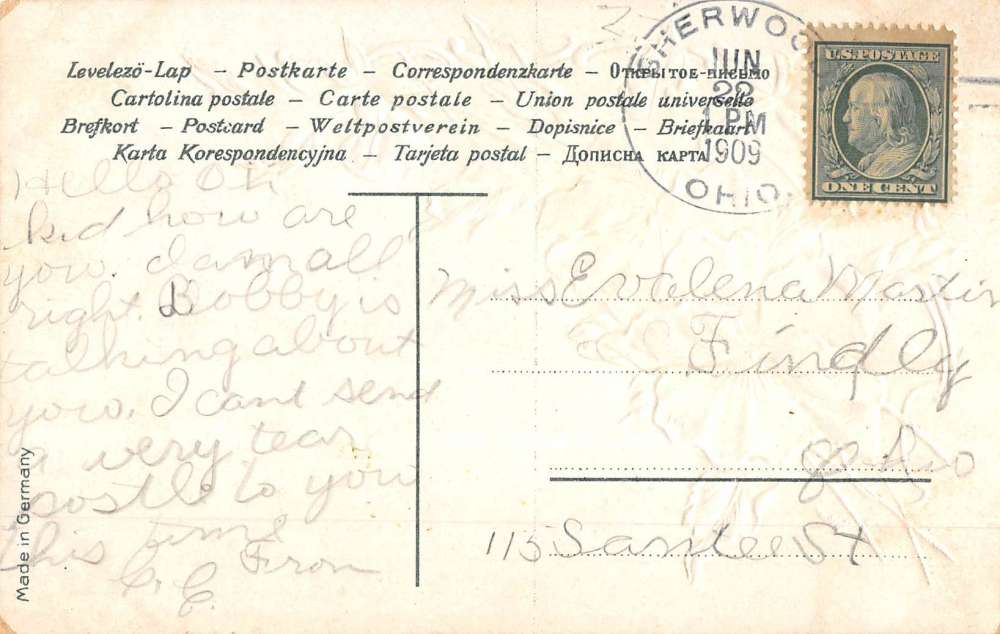 Levelező-Lap – Postkarte – Correspondenzkarte – Открытое-письмо
Cartolina postale – Carte postale – Union postale universelle
Brefkort – Postcard – Weltpostverein – Dopisnice – Briefkaart
Karta Korespondencyjna – Tarjeta postal – Дописна карта
SHERWOOD
JUN
22
1 PM
1909
OHIO.
U.S. POSTAGE
ONE CENT
Hello
kid how are
you. I am all
right. Bobby is
talking about
you. I cant send
a very
postle to you
this time
From
C. C.
Miss Evalena Martin
Findly
Ohio
113 Santee St
Made in Germany